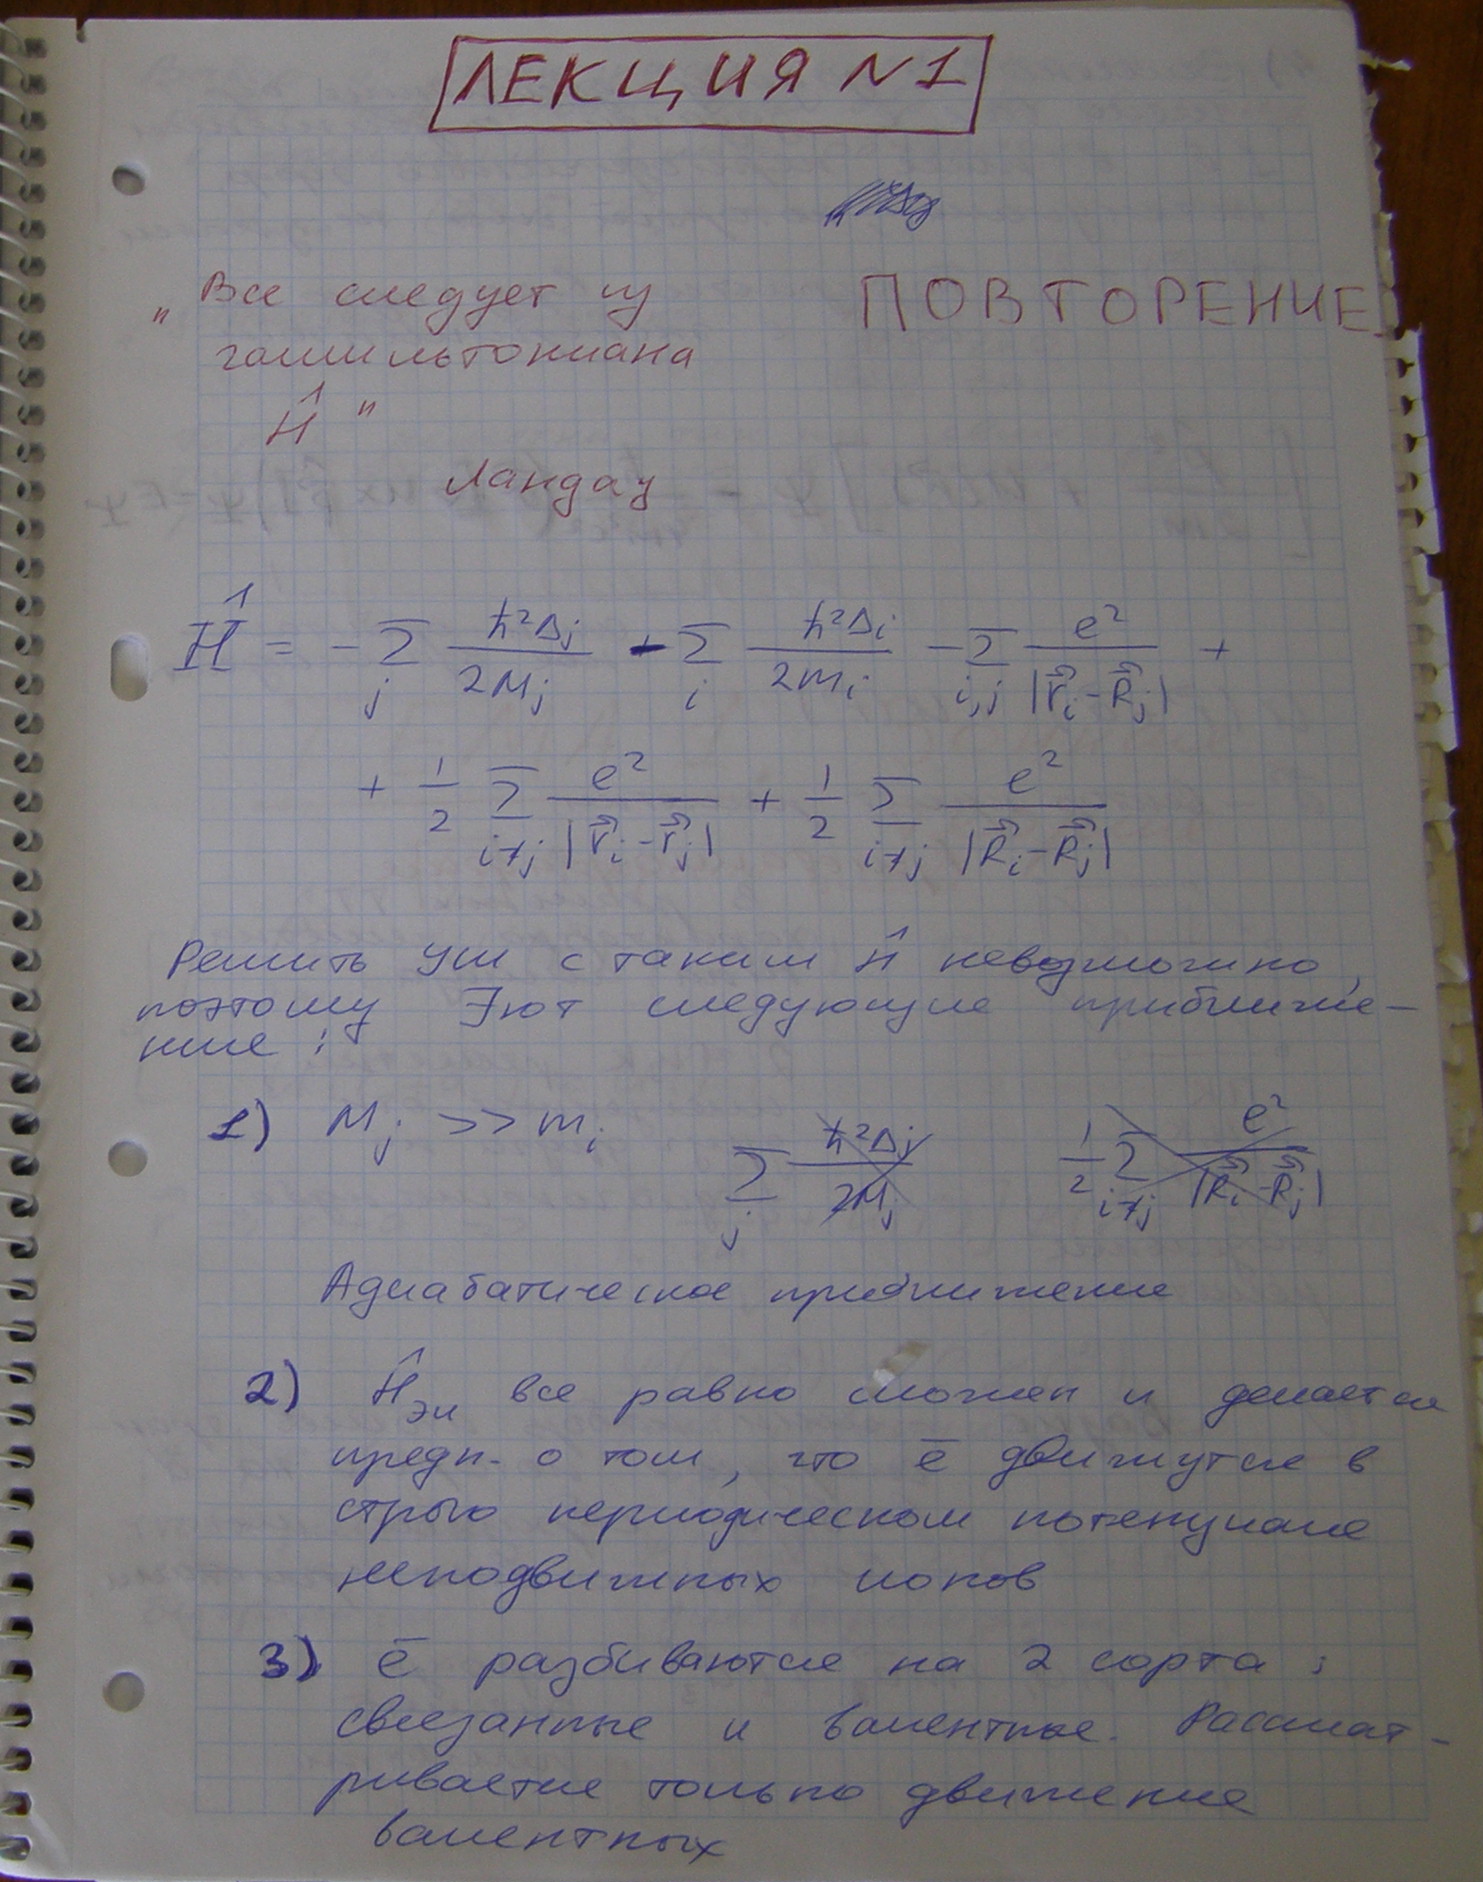 ЛЕКЦИЯ N1
ПОВТОРЕНИЕ
"Все следует из
гамильтониана
Ĥ"
Ландау
Ĥ = - Σ_j ħ²Δ_j / 2M_j - Σ_i ħ²Δ_i / 2m_i - Σ_{i,j} e² / |r⃗_i - R⃗_j| +
+ 1/2 Σ_{i≠j} e² / |r⃗_i - r⃗_j| + 1/2 Σ_{i≠j} e² / |R⃗_i - R⃗_j|
Решить УШ с таким Ĥ невозможно,
поэтому ∃ют следующие приближе-
ние:
1) M_j >> m_i Σ_j ħ²Δ_j / 2M_j 1/2 Σ_{i≠j} e² / |R⃗_i - R⃗_j|
Адиабатическое приближение
2) Ĥ_эл все равно сложен и делается
предп. о том, что ē движутся в
строго периодическом потенциале
неподвижных ионов
3) ē разбиваются на 2 сорта:
связанные и валентные. Рассмат-
ривается только движение
валентных